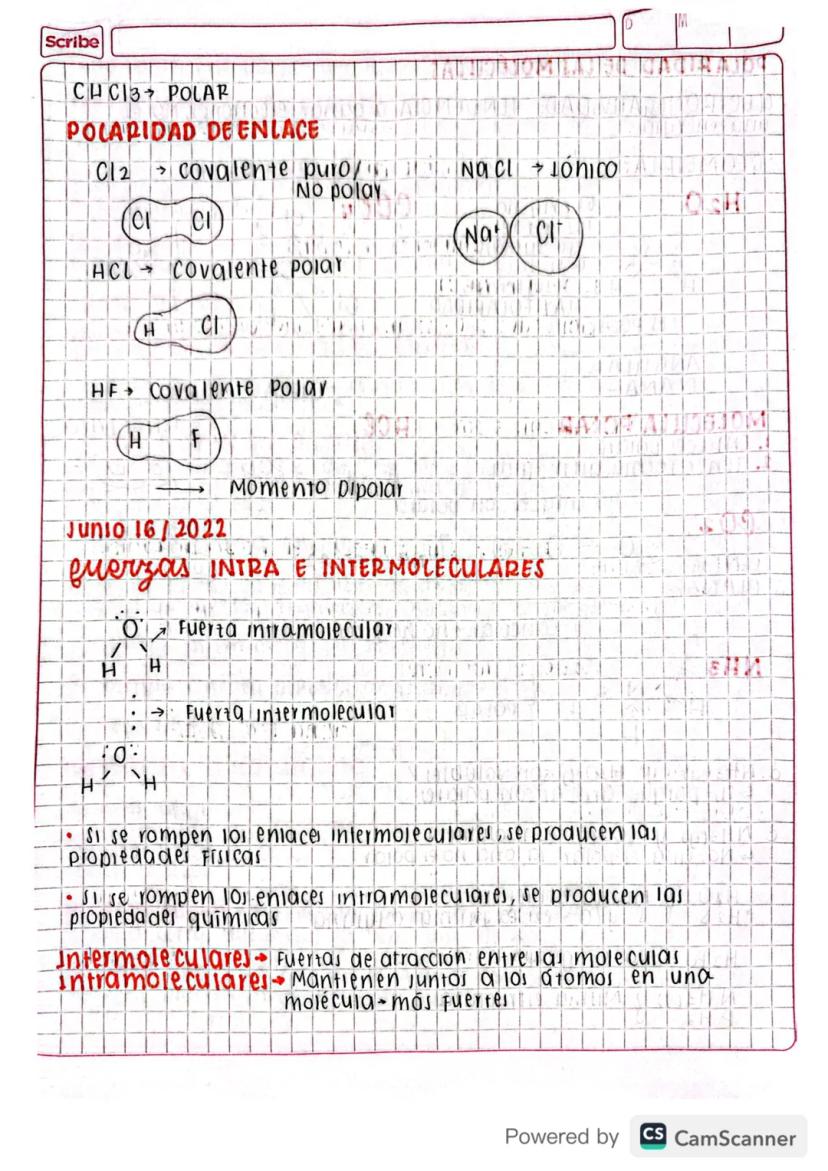 Scribe
D M
CHCl3→ POLAR
POLARIDAD DE ENLACE
Cl2 → covalente puro/
No polar
NaCl → Iónico
Cl Cl
Na⁺ Cl⁻
HCL → Covalente polar
H Cl
HF → Covalente Polar
H F
→ Momento Dipolar
Junio 16/2022
fuerzas INTRA E INTERMOLECULARES
O → Fuerza intramolecular
H H
→ Fuerza intermolecular
O
H H
• Si se rompen los enlaces intermoleculares, se producen las
propiedades Físicas
• Si se rompen los enlaces intramoleculares, se producen las
propiedades químicas
Intermoleculares→ Fuerzas de atracción entre las moleculas
intramoleculares→ Mantienen juntos a los átomos en una
molécula - más fuertes
Powered by CS CamScanner